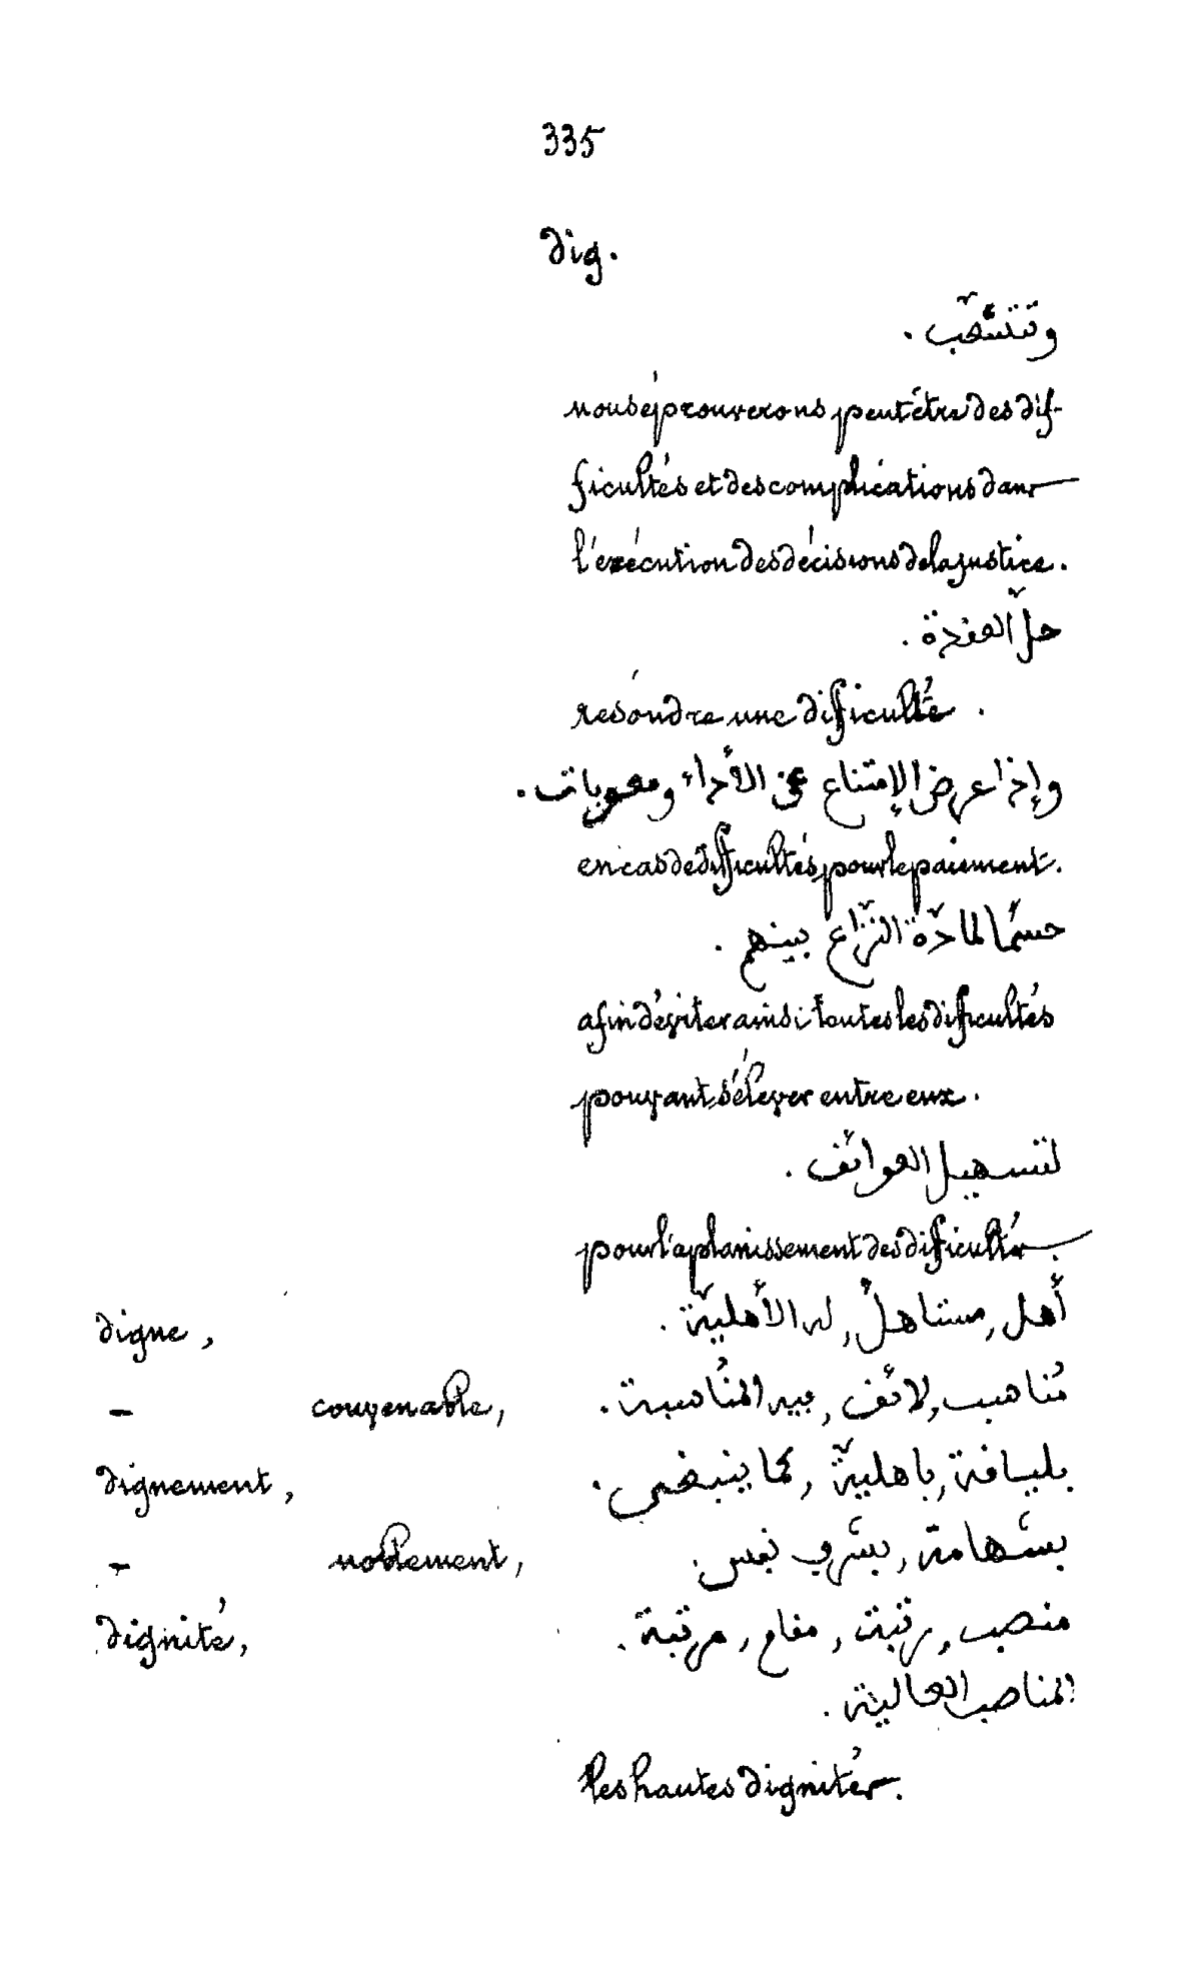 335
dig.
وتتشعّب .
nous éprouverons peut être des dif-
ficultés et des complications dans
l'exécution des décisions de la justice.
حلّ العقدة .
résoudre une difficulté .
وإذا عرض الإمتناع عن الأداء وصعوبات .
en cas de difficultés pour le paiement.
حسمًا لمادّة النّزاع بينهم .
afin d'éviter ainsi toutes les difficultés
pouvant s'élever entre eux.
لتسهيل العوائق .
pour l'aplanissement des difficultés.
digne, أهل, مستاهلٌ, له الأهليّة .
- convenable, مُناسب, لائق, بيه المُناسبة .
dignement, بلياقة, باهليّة, كما ينبغي .
- noblement, بشهامة, بشرف نفس .
dignité, منصب, رتبة, مقام, مرتبة .
المناصب العالية .
les hautes dignités.